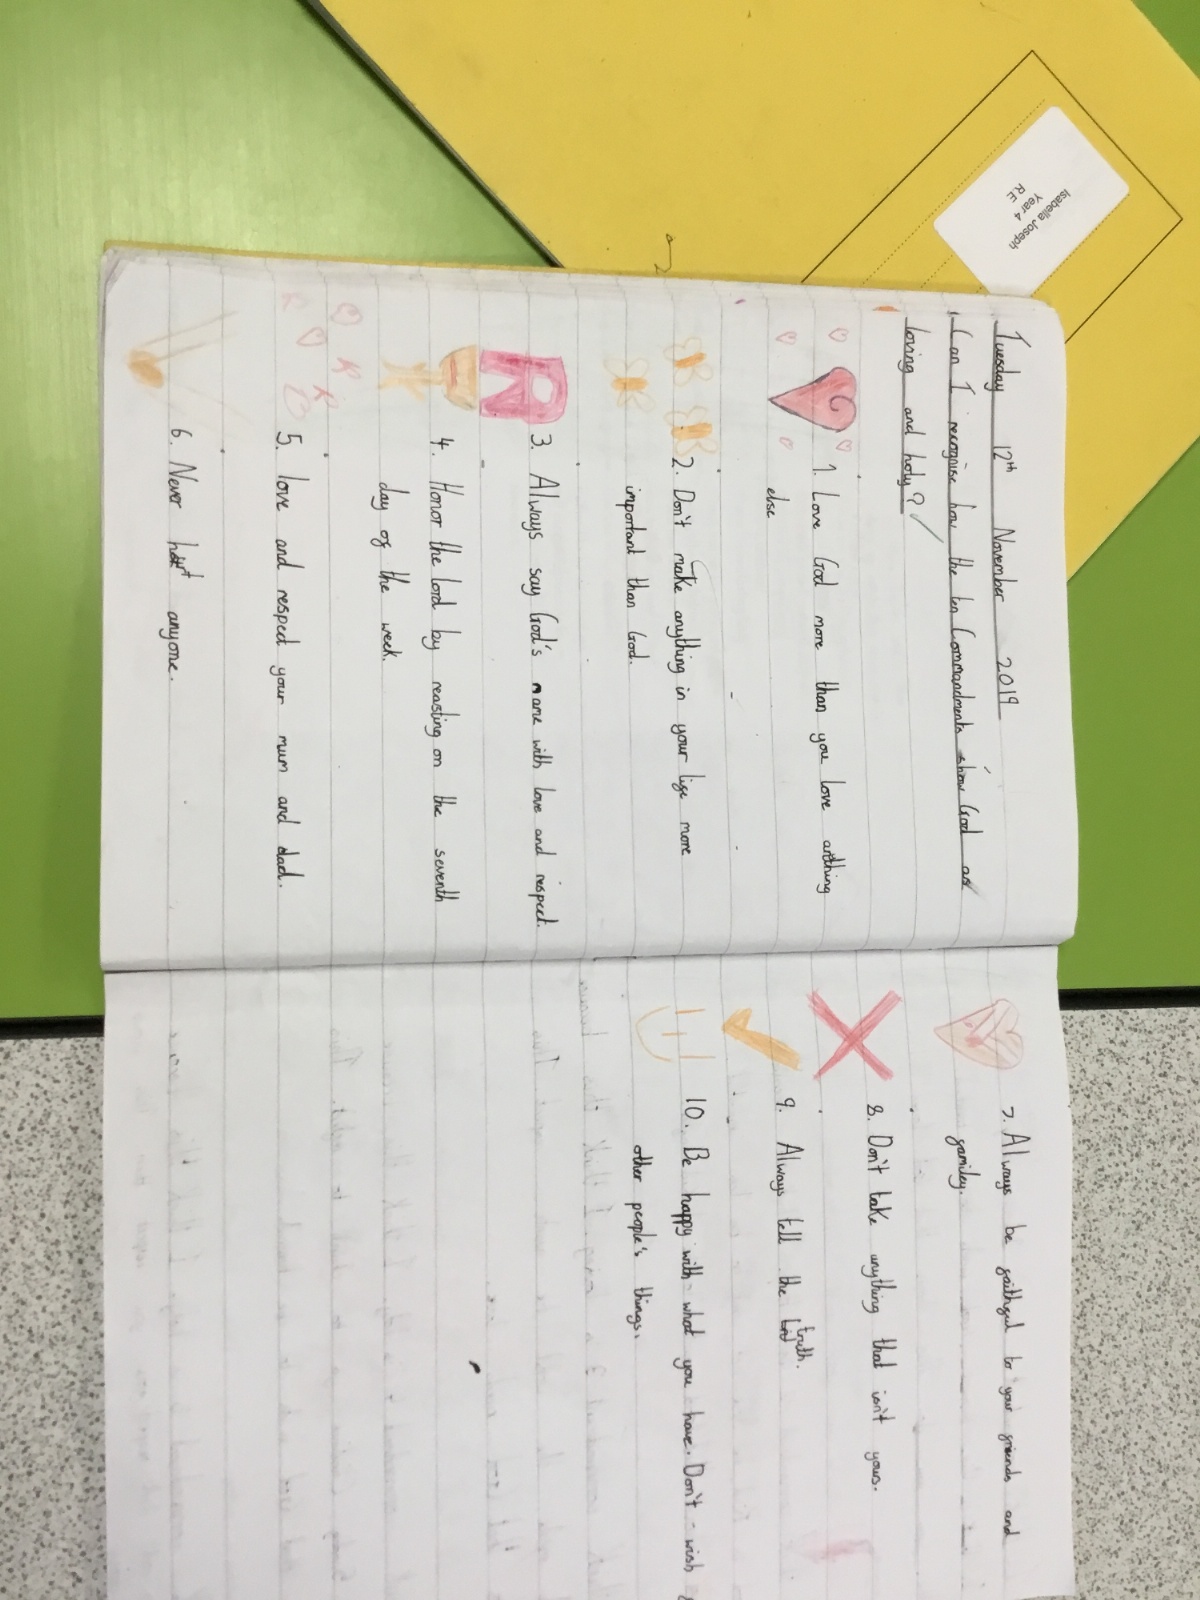 Isabella Joseph
Year 4
R.E
Tuesday 12th November 2019
Can I recognise how the ten Commandments show God as
loving and holy?
1. Love God more than you love anthing
else
2. Don't make anything in your life more
important than God.
3. Always say God's name with love and respect.
4. Honor the lord by reasting on the seventh
day of the week.
5. love and respect your mum and dad.
6. Never hurt anyone.
7. Always be faithful to your friends and
familey.
8. Don't take anything that isn't yours.
9. Always tell the truth.
10. Be happy with what you have. Don't wish
other people's things.